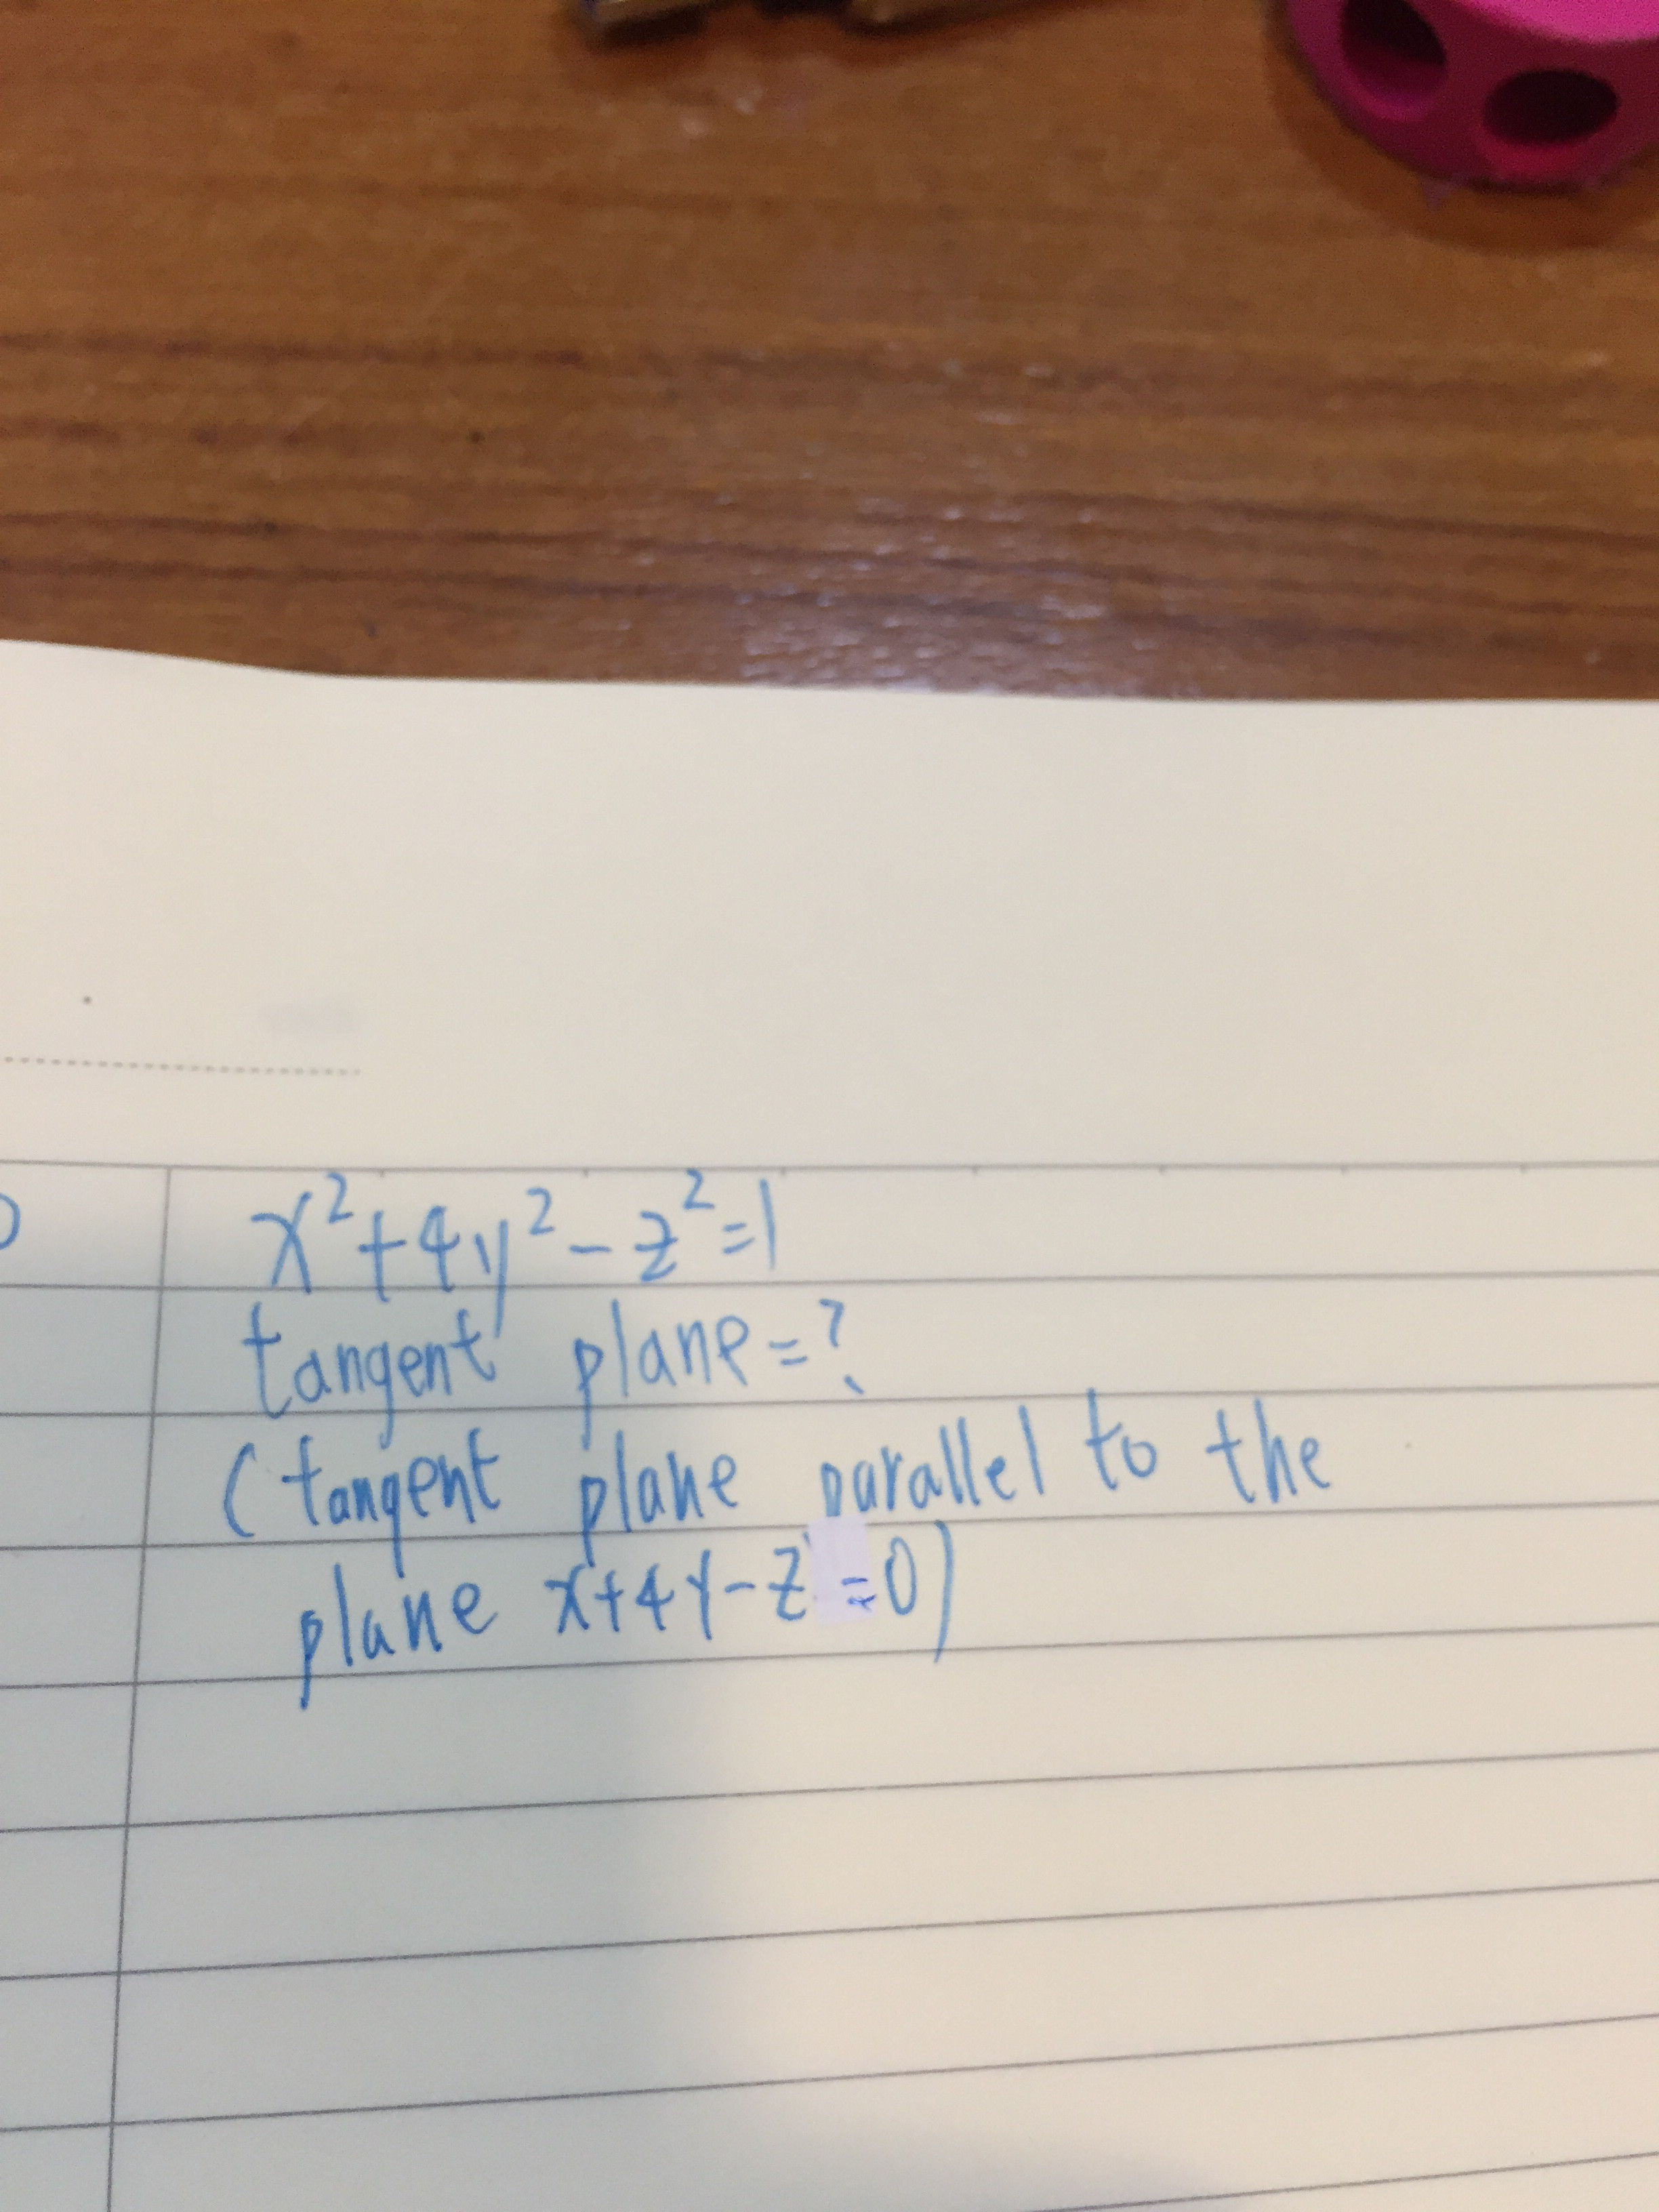 x²+4y²-z²=1
tangent plane=?
(tangent plane parallel to the
plane x+4y-z=0)